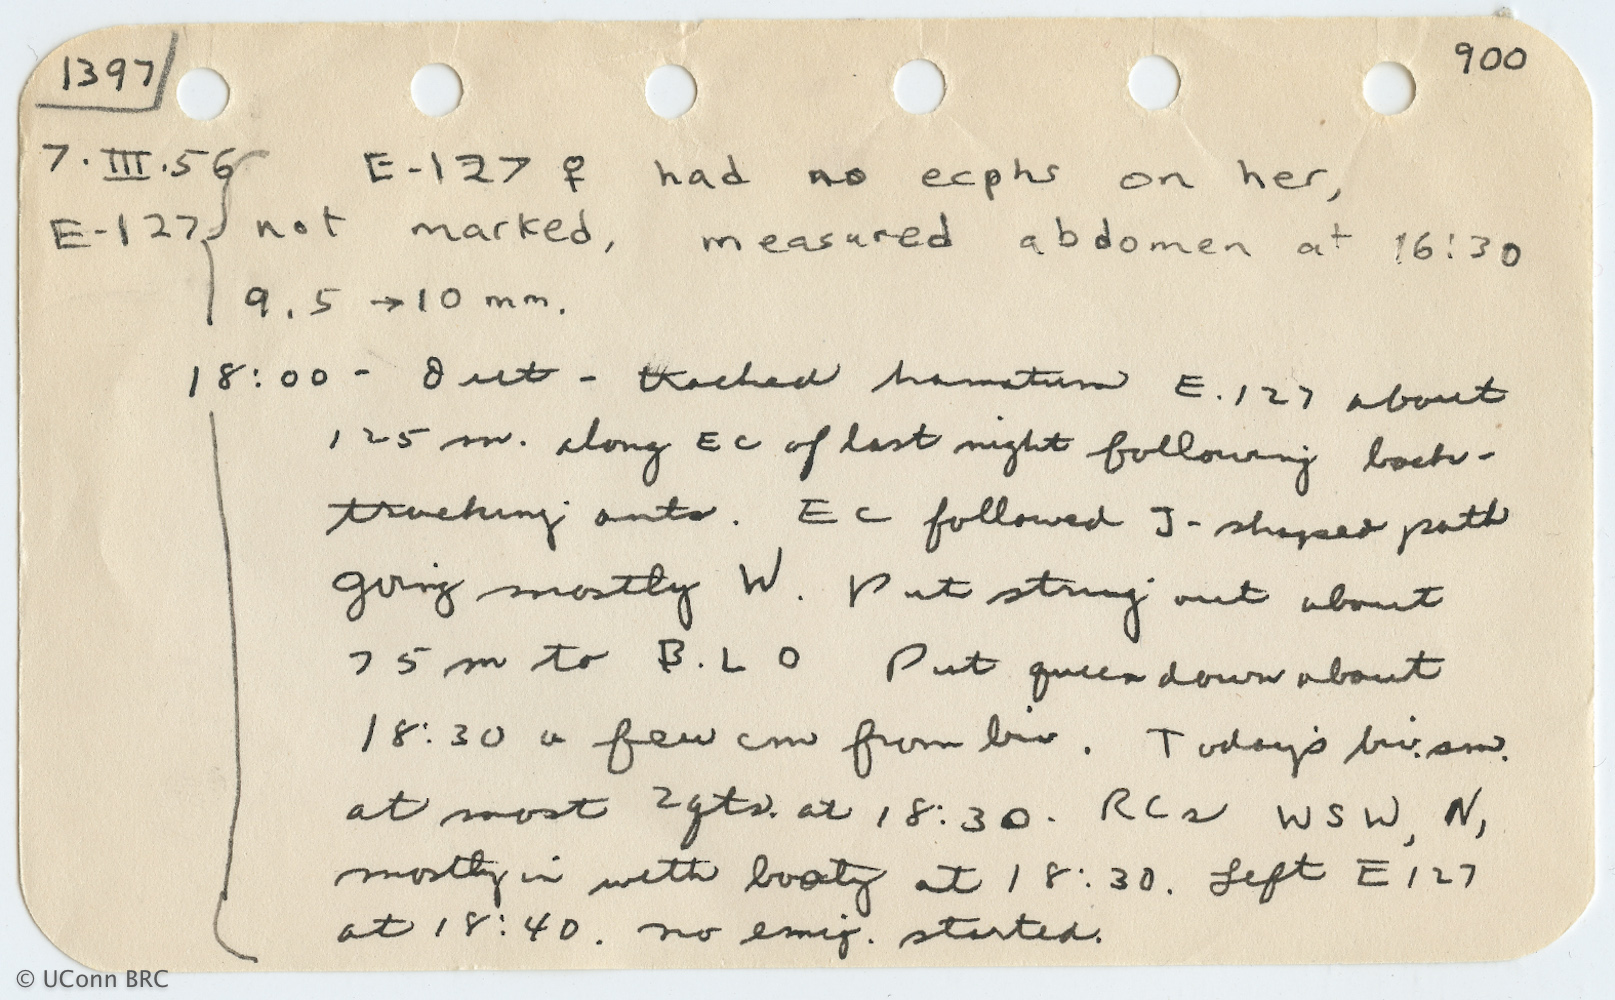 1397
900
7.III.56 E-127 ♀ had no ecphs on her,
E-127 not marked, measured abdomen at 16:30
9.5 → 10 mm.
18:00 - Out - tracked hamatum E.127 about
125 m. along EC of last night following back-
tracking ants. EC followed J-shaped path
going mostly W. Put string out about
75 m to B.L O Put queen down about
18:30 a few cm from biv. Today's biv. sm.
at most 2 qts. at 18:30. RCs WSW, N,
mostly in with booty at 18:30. Left E127
at 18:40. no emig. started.
© UConn BRC